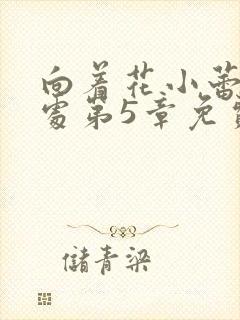 向着花小蕾
处第5章免
储青梁